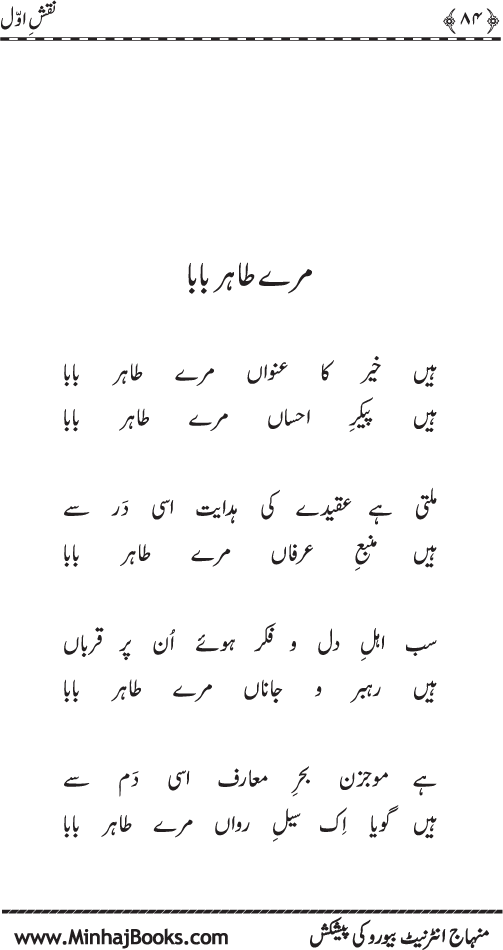 نقشِ اوّل
﴿۸۴﴾
مرے طاہر بابا
ہیں خیر کا عنواں مرے طاہر بابا
ہیں پیکرِ احساں مرے طاہر بابا
ملتی ہے عقیدے کی ہدایت اسی دَر سے
ہیں منبعِ عرفاں مرے طاہر بابا
سب اہلِ دل و فکر ہوئے اُن پر قرباں
ہیں رہبر و جاناں مرے طاہر بابا
ہے موجزن بحرِ معارف اسی دَم سے
ہیں گویا اِک سیلِ رواں مرے طاہر بابا
منہاج انٹرنیٹ بیورو کی پیشکش
www.MinhajBooks.com